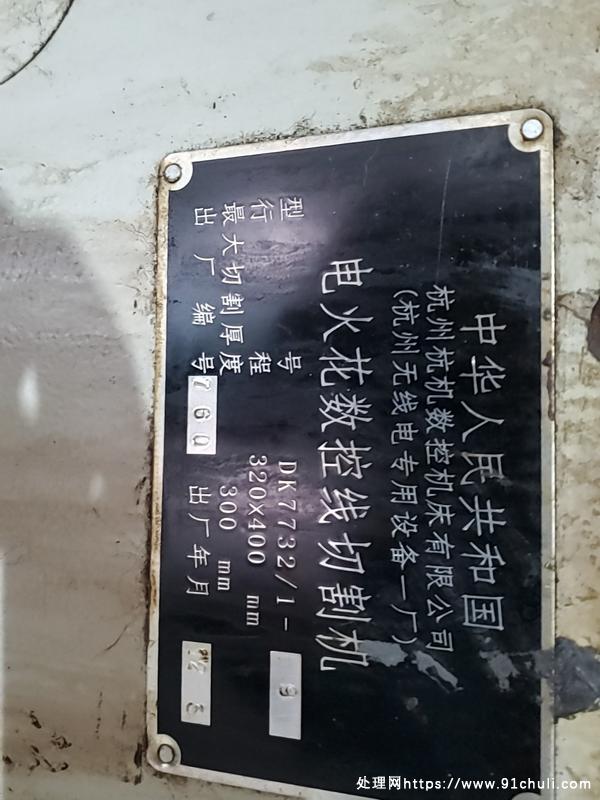 中华人民共和国
杭州杭机数控机床有限公司
(杭州无线电专用设备一厂)
电火花数控线切割机
型号 DK7732/1- 9
行程 320X400 mm
最大切割厚度 300 mm
出厂编号 760 出厂年月
处理网https://www.91chuli.com